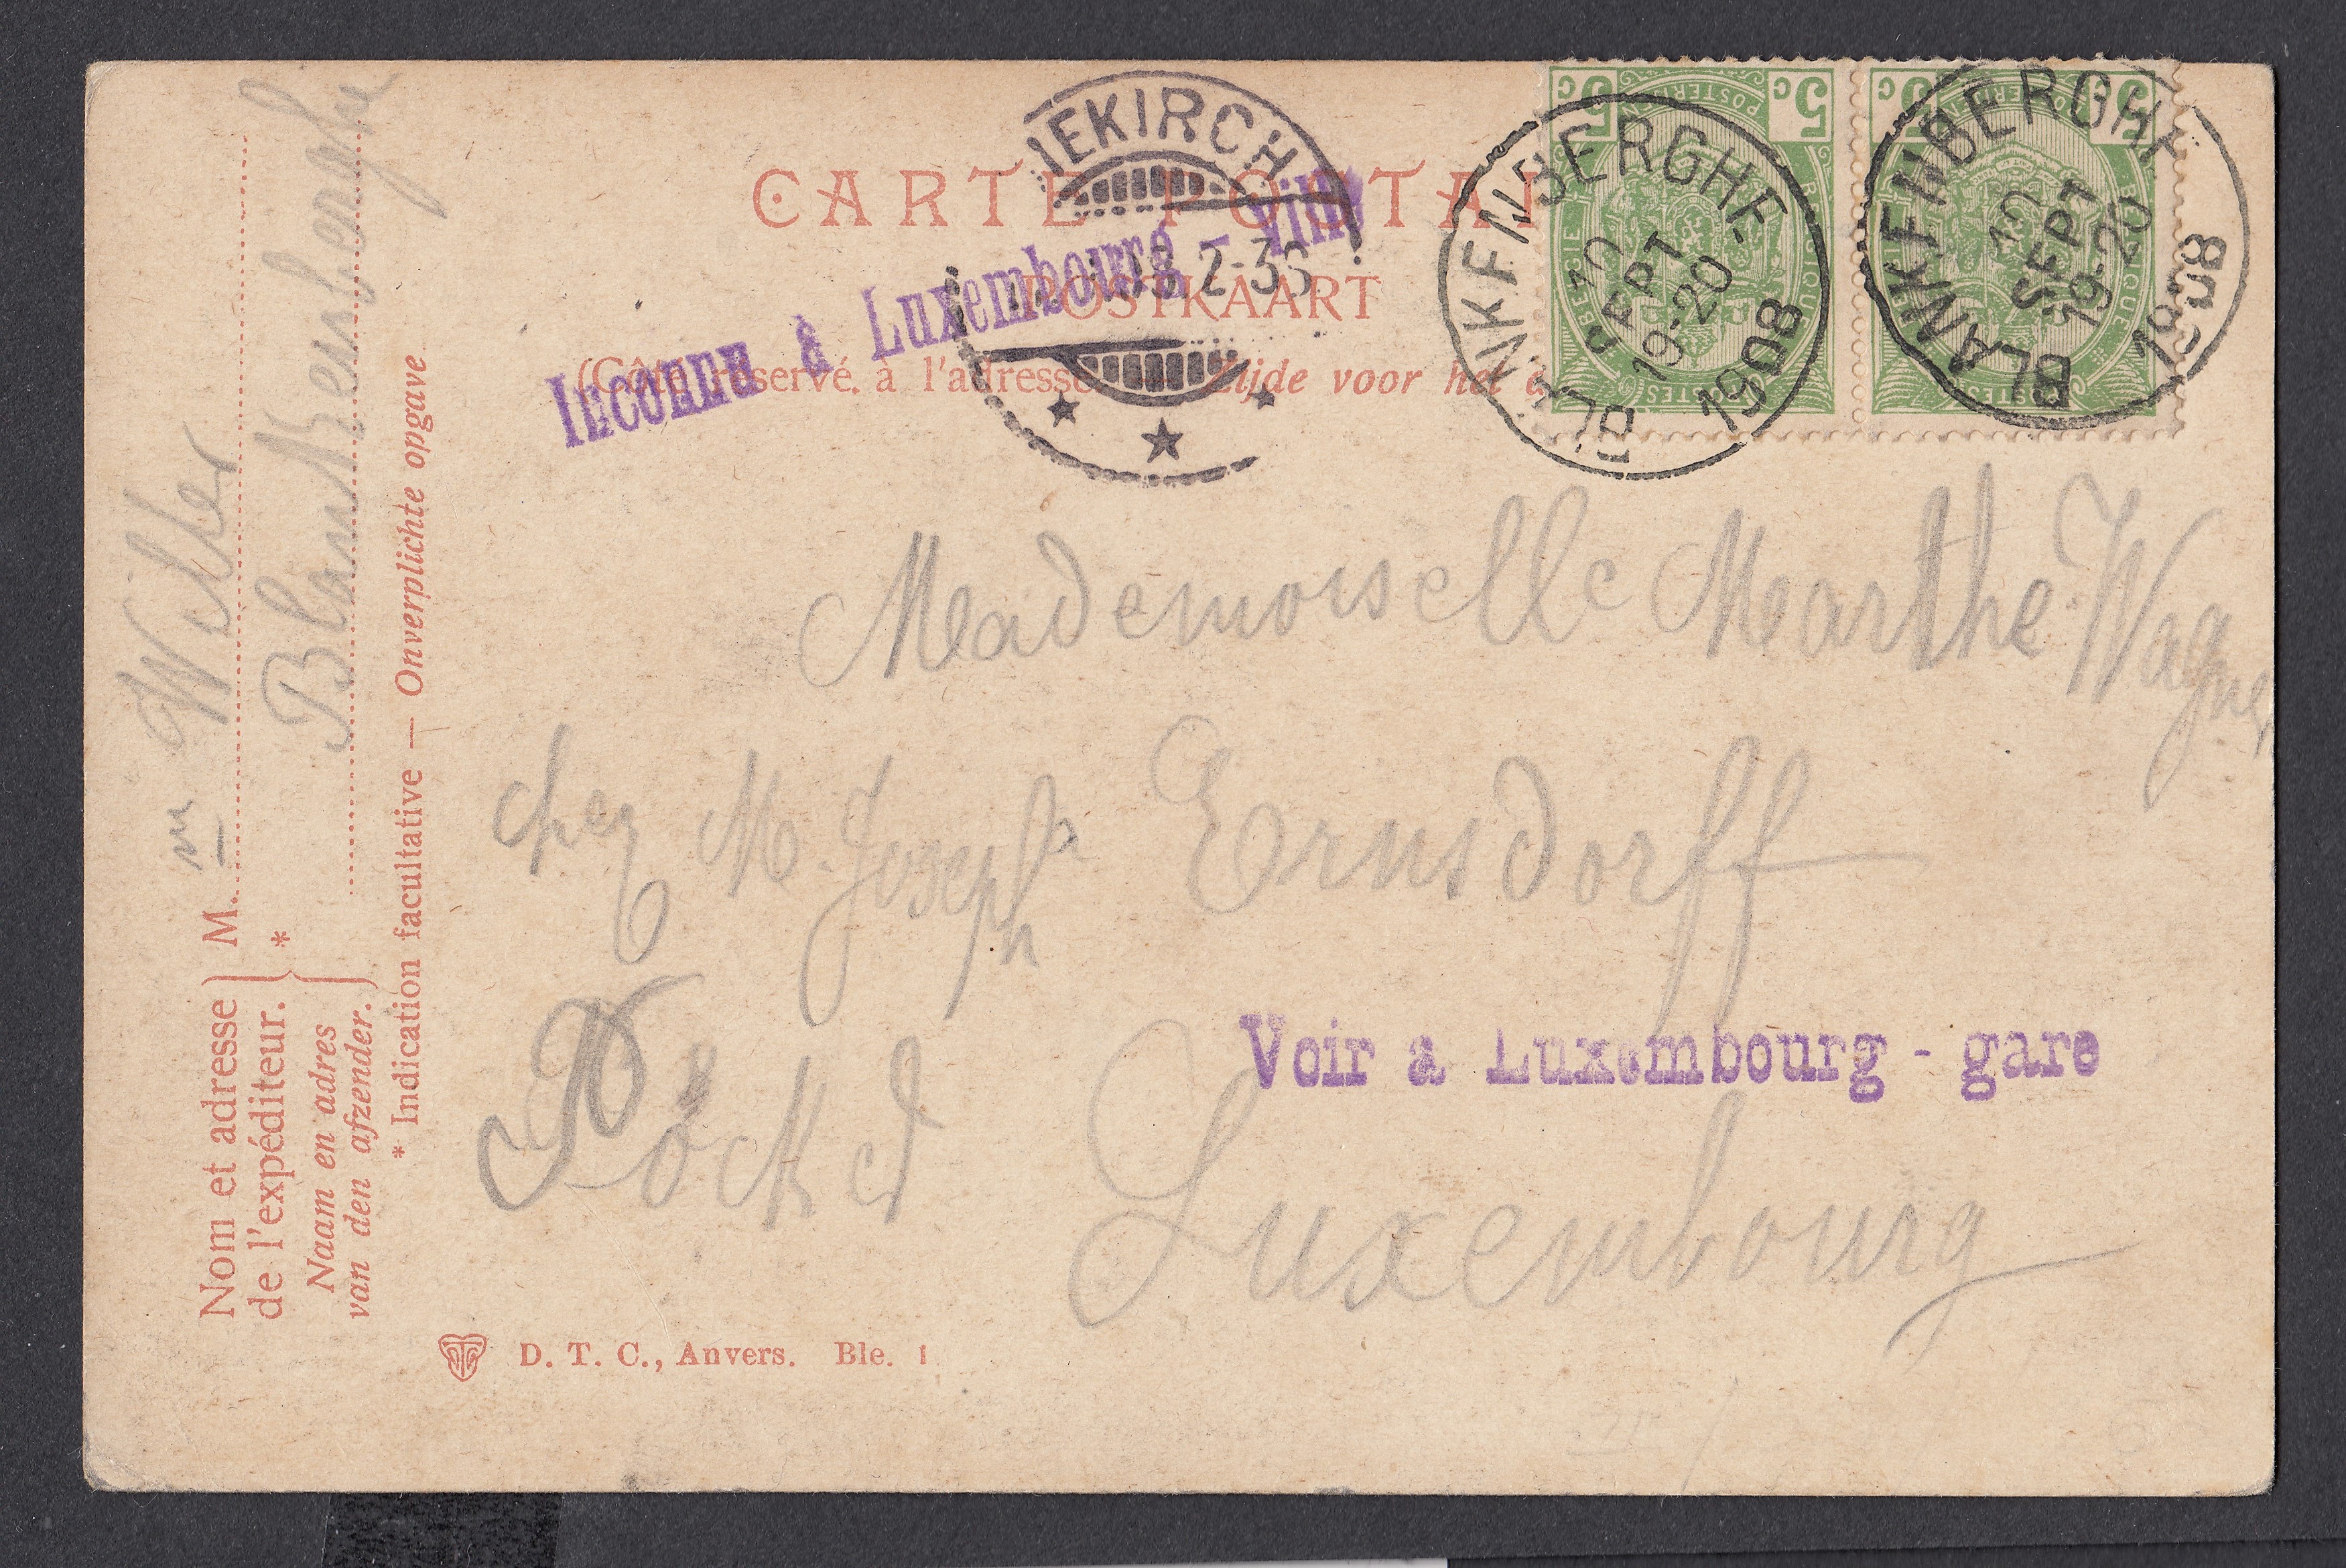 CARTE POSTA
POSTKAART
(Côté réservé à l'adresse Zijde voor het
IEKIRCH
2-3S
Inconnu à Luxembourg - Ville
5c 5c
POSTERIJ
BELGIE BELGIQUE
POSTES
BLANKENBERGHE
10
SEPT
19-20
1908
5c 5c
BELGIQUE
POSTES
BLANKENBERGHE
10
SEPT
19-20
1908
Mademoiselle Marthe Wagner
chez M. Joseph Ernsdorff
Voir a Luxembourg - gare
Luxembourg
D. T. C., Anvers. Ble. 1
Nom et adresse
de l'expéditeur.
M.
*
Naam en adres
van den afzender.
Blankenberghe
* Indication facultative — Onverplichte opgave